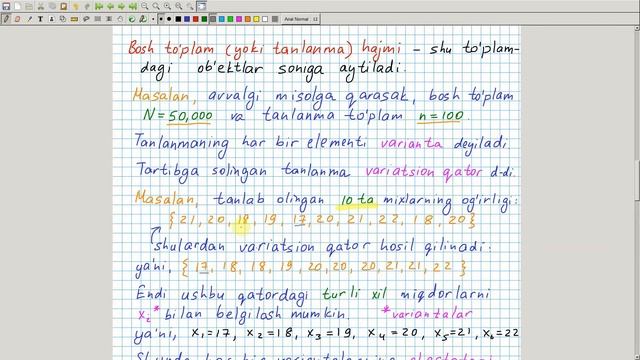 Arial Normal 12
Bosh to'plam (yoki tanlanma) hajmi - shu to'plam-
dagi ob'ektlar soniga aytiladi.
Masalan, avvalgi misolga qarasak, bosh to'plam
N=50,000 va tanlanma to'plam n=100.
Tanlanmaning har bir elementi varianta deyiladi
Tartibga solingan tanlanma variatsion qator d-di.
Masalan, tanlab olingan 10 ta mixlarning og'irligi:
{21, 20, 18, 19, 17, 20, 21, 22, 18, 20}
shulardan variatsion qator hosil qilinadi:
ya'ni, {17, 18, 18, 19, 20, 20, 20, 21, 21, 22}
Endi ushbu qatordagi turli xil miqdorlarni
xᵢ* bilan belgilash mumkin. *variantalar
ya'ni, x₁=17, x₂=18, x₃=19, x₄=20, x₅=21, x₆=22